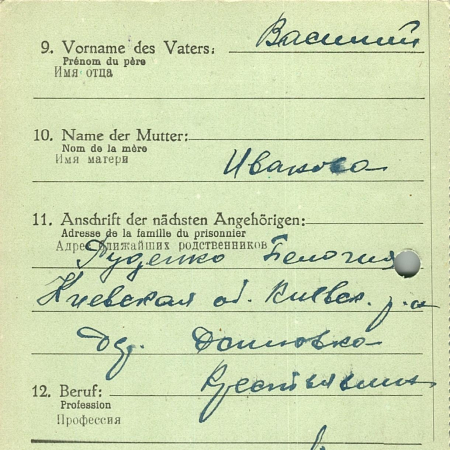 9. Vorname des Vaters: Василий
Prénom du père
Имя отца
10. Name der Mutter:
Nom de la mère
Имя матери
Иванова
11. Anschrift der nächsten Angehörigen:
Adresse de la famille du prisonnier
Адрес ближайших родственников
Руденко
Киевская об. Киевск. р-н
дер.
12. Beruf:
Profession
Профессия